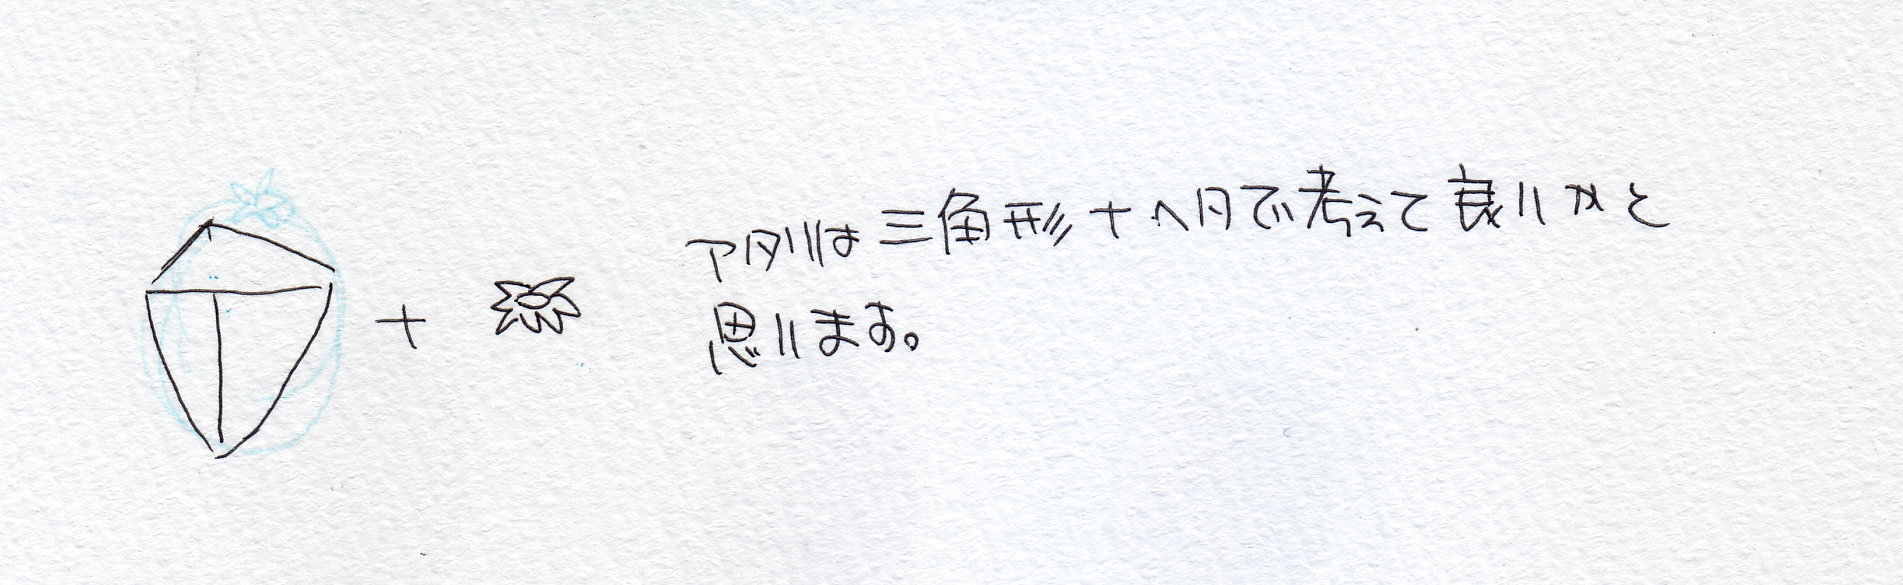 +
アタリは三角形+ヘタで考えて良いかと
思います。